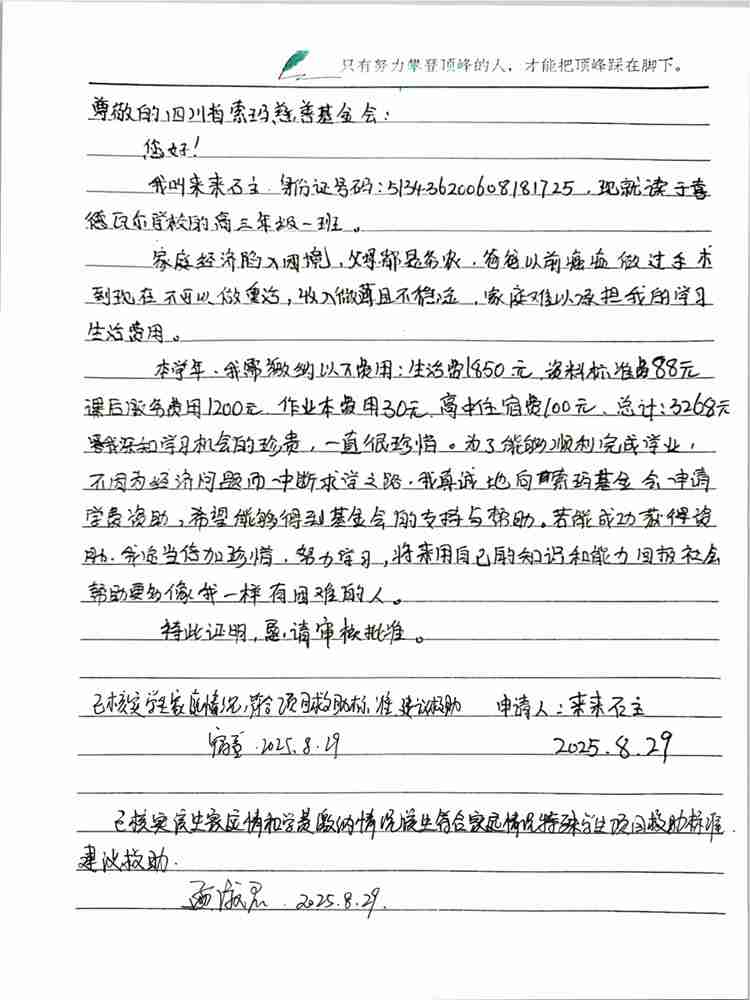 只有努力攀登顶峰的人，才能把顶峰踩在脚下。
尊敬的四川省索玛慈善基金会：
您好！
我叫来来石主，身份证号码：513436200608181725，现就读于喜
德瓦尔学校的高三年级一班。
家庭经济陷入困境，父母都是务农，爸爸以前患 做过手术
到现在不可以做重活，收入微薄且不稳定，家庭难以承担我的学习
生活费用。
本学年，我需缴纳以下费用：生活费1850元，资料标准费88元
课后服务费用1200元，作业本费用30元，高中住宿费100元，总计：3268元
我深知学习机会的珍贵，一直很珍惜。为了能够顺利完成学业，
不因为经济问题而中断求学之路，我真诚地向索玛基金会申请
学费资助，希望能够得到基金会的支持与帮助。若能成功获得资
助，我定当倍加珍惜，努力学习，将来用自己的知识和能力回报社会
帮助更多像我一样有困难的人。
特此证明，恳请审核批准。
已核实学生家庭情况，符合项目救助标准，建议救助 申请人：来来石主
2025.8.29 2025.8.29
已核实该生家庭情和学费缴纳情况该生符合家庭情况特殊学生项目救助标准
建议救助.
2025.8.29.